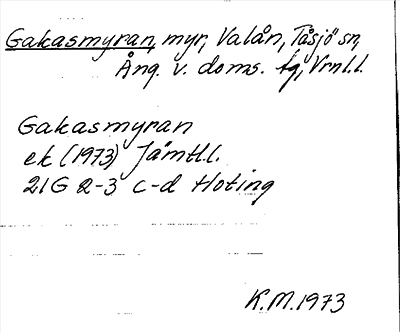 Gakasmyran, myr, Valån, Tåsjö sn,
Ång. v. doms. tg, Vrnl.l.
Gakasmyran
ek (1973) Jämtl.l.
21G 2-3 c-d Hoting
K.M.1973